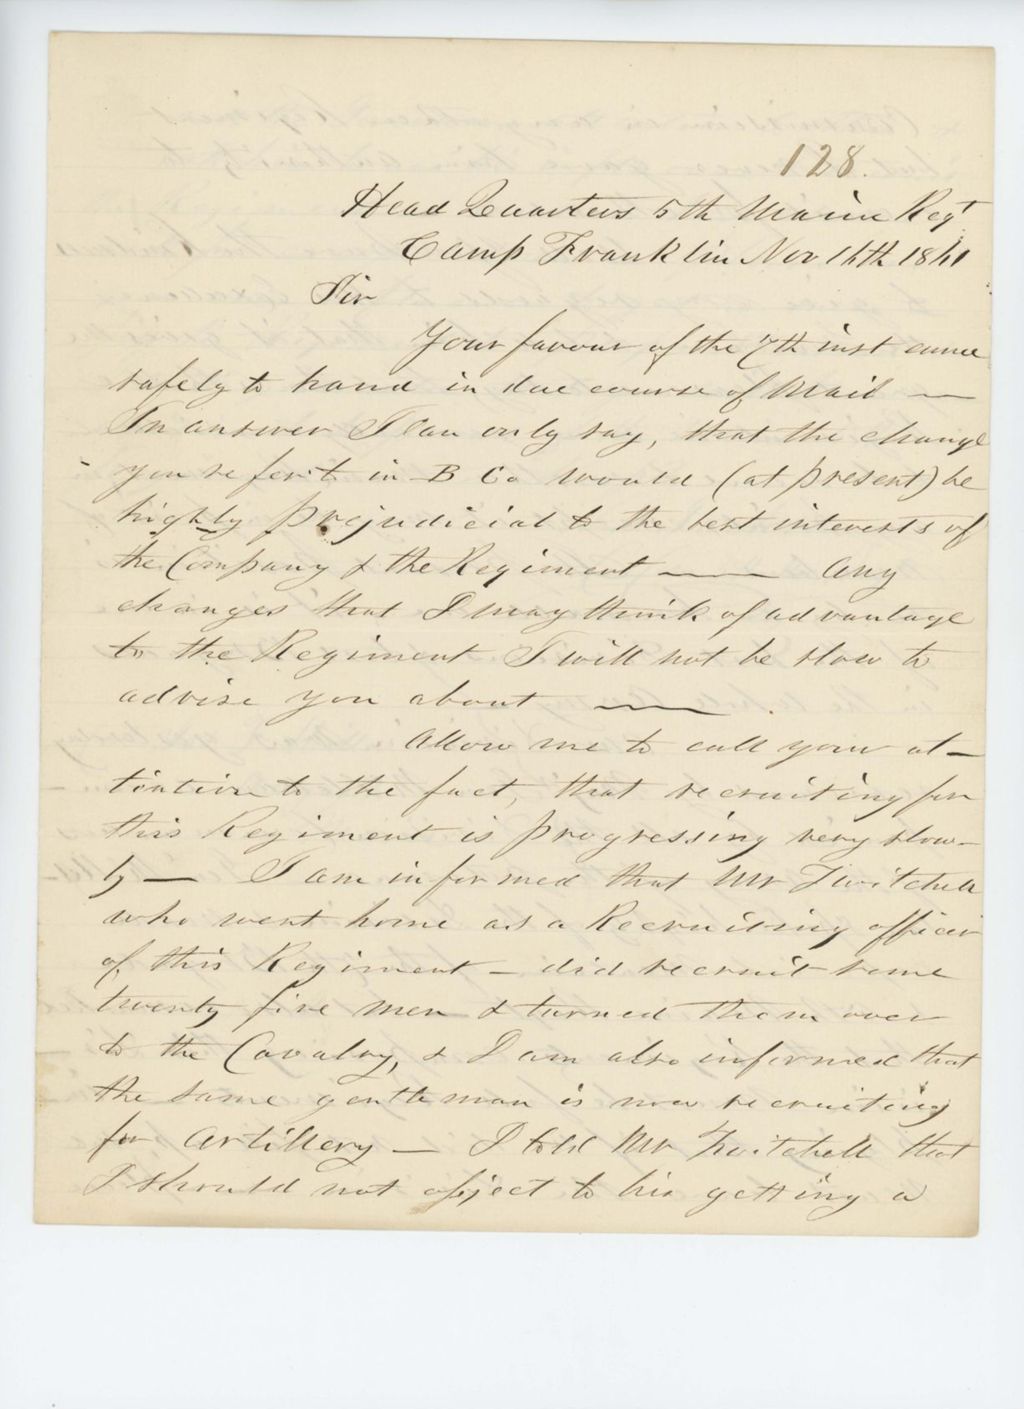 128.
Head Quarters 5th Maine Regt
Camp Franklin Nov 16th 1861
Sir
Your favour of the 7th inst came
safely to hand in due course of Mail —
In answer I can only say, that the change
you refer to in B Co would (at present) be
highly prejudicial to the best interests of
the Company & the Regiment —— Any
changes that I may think of advantage
to the Regiment I will not be slow to
advise you about —— .
Allow me to call your at-
tention to the fact, that recruiting for
this Regiment is progressing very slow-
ly — I am informed that Mr Twitchell
who went home as a Recruiting officer
of this Regiment — did recruit some
twenty five men & turned them over
to the Cavalry, & I am also informed that
the same gentleman is now recruiting
for Artillery — I told Mr Twitchell that
I should not object to his getting a